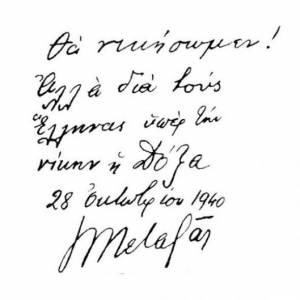 θά νικήσωμεν!
Ἀλλὰ διὰ τοὺς
Ἕλληνας ὑπὲρ τὴν
νίκην ἡ Δόξα
28 Ὀκτωβρίου 1940
Ι Μεταξᾶς